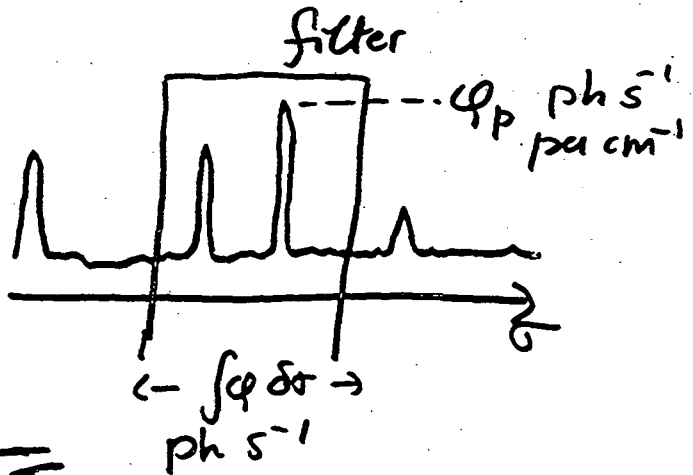 filter
φ_p ph s⁻¹
per cm⁻¹
σ
← ∫φ dσ →
ph s⁻¹